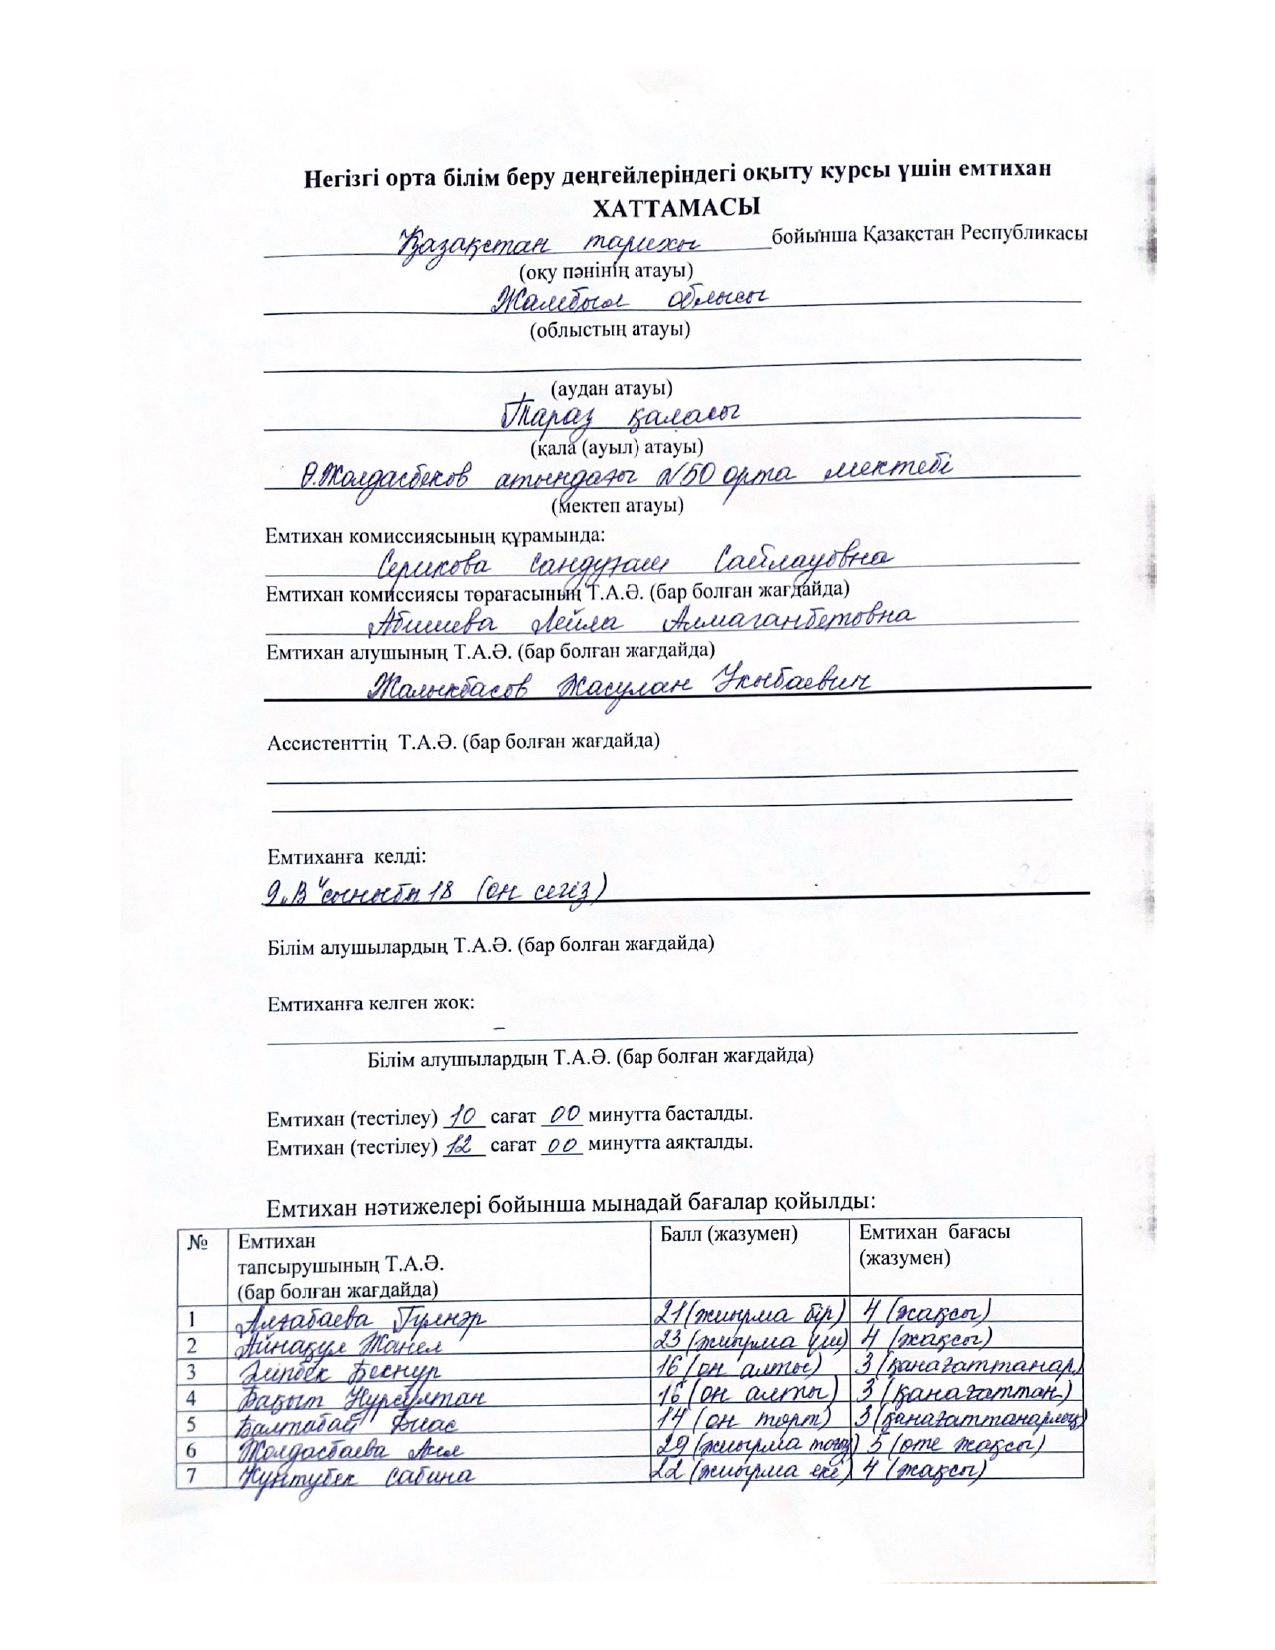 Негізгі орта білім беру деңгейлеріндегі оқыту курсы үшін емтихан
ХАТТАМАСЫ
Қазақстан тарихы бойынша Қазақстан Республикасы
(оқу пәнінің атауы)
Жамбыл облысы
(облыстың атауы)
(аудан атауы)
Тараз қаласы
(қала (ауыл) атауы)
Ө.Жолдасбеков атындағы №50 орта мектебі
(мектеп атауы)
Емтихан комиссиясының құрамында:
Серикова Сандуғаш Сайлаубвна
Емтихан комиссиясы төрағасының Т.А.Ә. (бар болған жағдайда)
Абишева Лейла Алмаганбетовна
Емтихан алушының Т.А.Ә. (бар болған жағдайда)
Жалыкбасов Жасулан Укыбаевич
Ассистенттің Т.А.Ә. (бар болған жағдайда)
Емтиханға келді:
9 „В" сыныбы 18 (он сегіз)
Білім алушылардың Т.А.Ә. (бар болған жағдайда)
Емтиханға келген жоқ:
–
Білім алушылардың Т.А.Ә. (бар болған жағдайда)
Емтихан (тестілеу) 10 сағат 00 минутта басталды.
Емтихан (тестілеу) 12 сағат 00 минутта аяқталды.
Емтихан нәтижелері бойынша мынадай бағалар қойылды:
№ Емтихан тапсырушының Т.А.Ә. (бар болған жағдайда) Балл (жазумен) Емтихан бағасы (жазумен)
1 Алғабаева Гүлнәр 21 (жиырма бір) 4 (жақсы)
2 Айнақұл Жанел 23 (жиырма үш) 4 (жақсы)
3 Әліпбек Бекнұр 16 (он алты) 3 (қанағаттанар)
4 Бақыт Нұрсұлтан 16 (он алты) 3 (қанағаттан.)
5 Балтабай 14 (он төрт) 3 (қанағаттанарлық)
6 Жолдасбаева 29 (жиырма тоғыз) 5 (өте жақсы)
7 Күнтубек Сабина 22 (жиырма екі) 4 (жақсы)